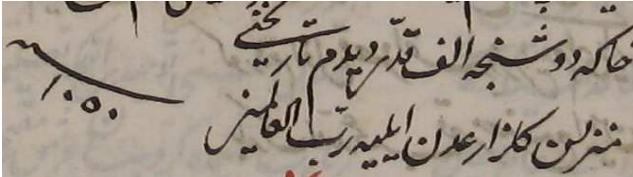 خاكه دوشنجه الف قدّی دیدم تاریخنی
منزلن كلزار عدن ایلیه ربّ العالمین
سنه ١٠٥٠